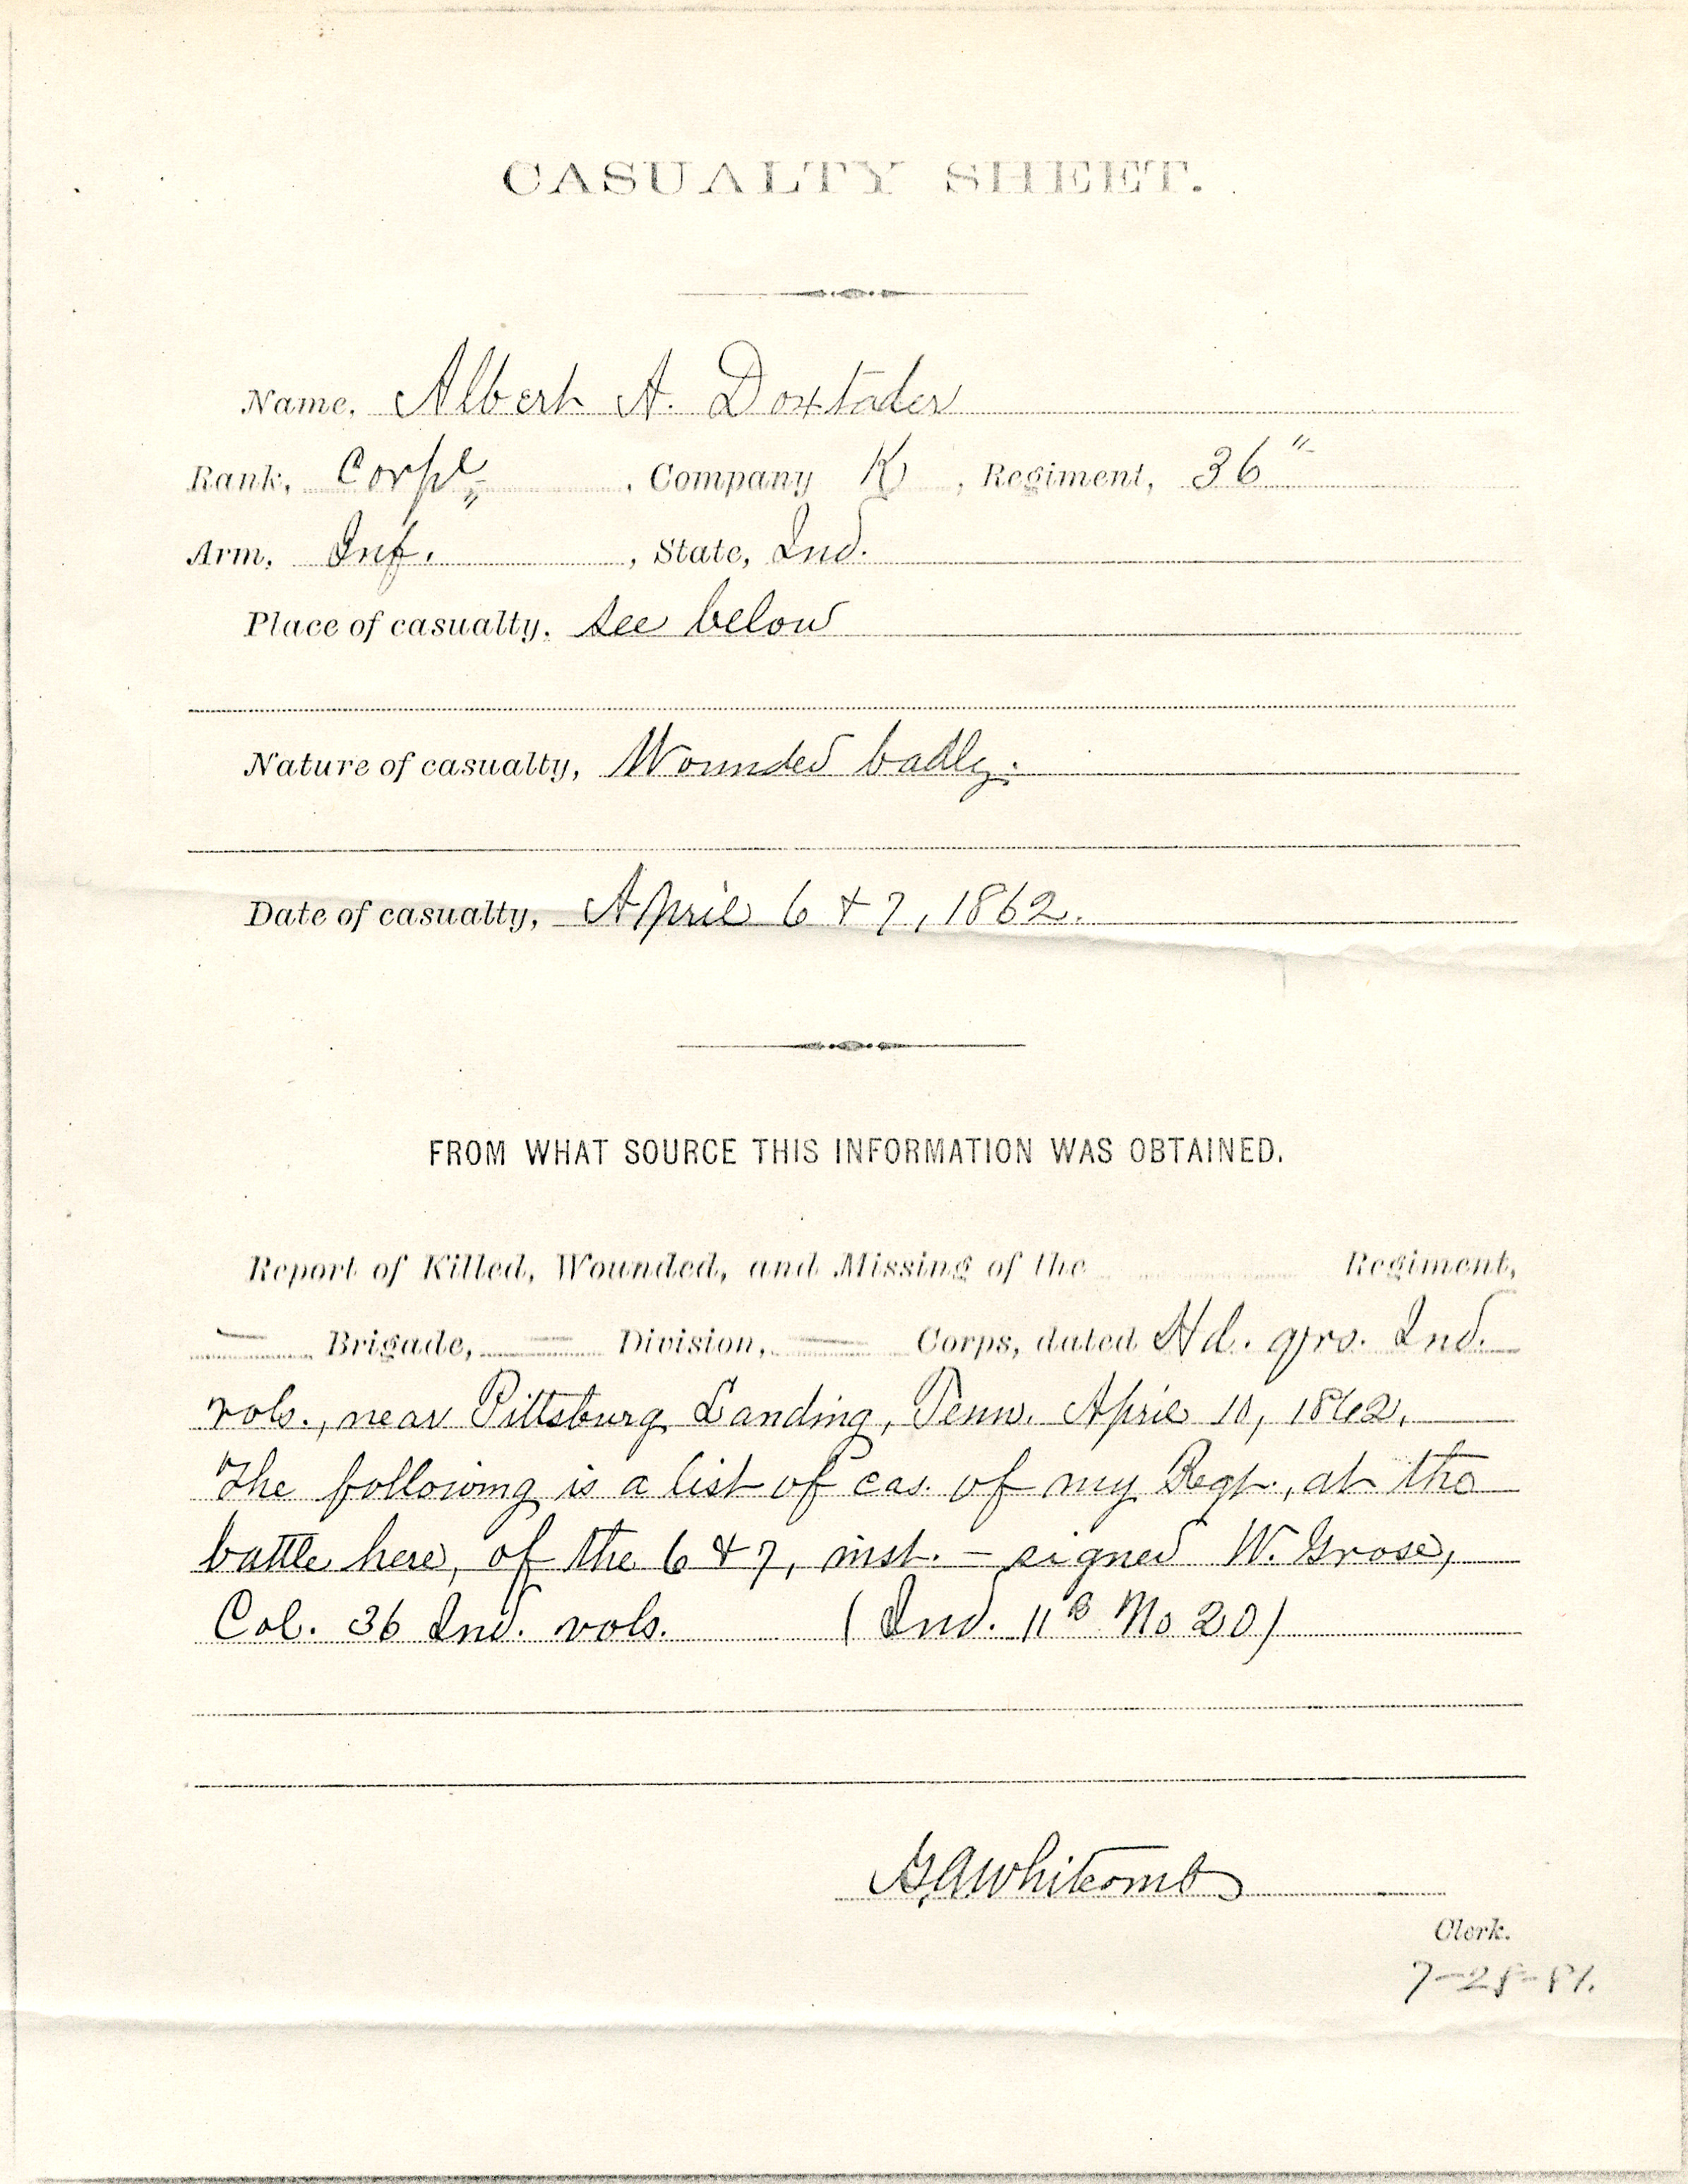 CASUALTY SHEET.
Name, Albert A. Doxtader
Rank, Corpl, Company K, Regiment, 36"
Arm, Inf., State, Ind.
Place of casualty, see below
Nature of casualty, Wounded badly.
Date of casualty, April 6 & 7, 1862.
FROM WHAT SOURCE THIS INFORMATION WAS OBTAINED.
Report of Killed, Wounded, and Missing of the Regiment,
— Brigade, — Division, — Corps, dated Hd. qrs. Ind.
vols., near Pittsburg Landing, Tenn. April 10, 1862.
The following is a list of cas. of my Regt., at the
battle here, of the 6 & 7, inst. – signed W. Grose,
Col. 36 Ind. vols. (Ind. 11 B No 20)
Whitcomb
Clerk.